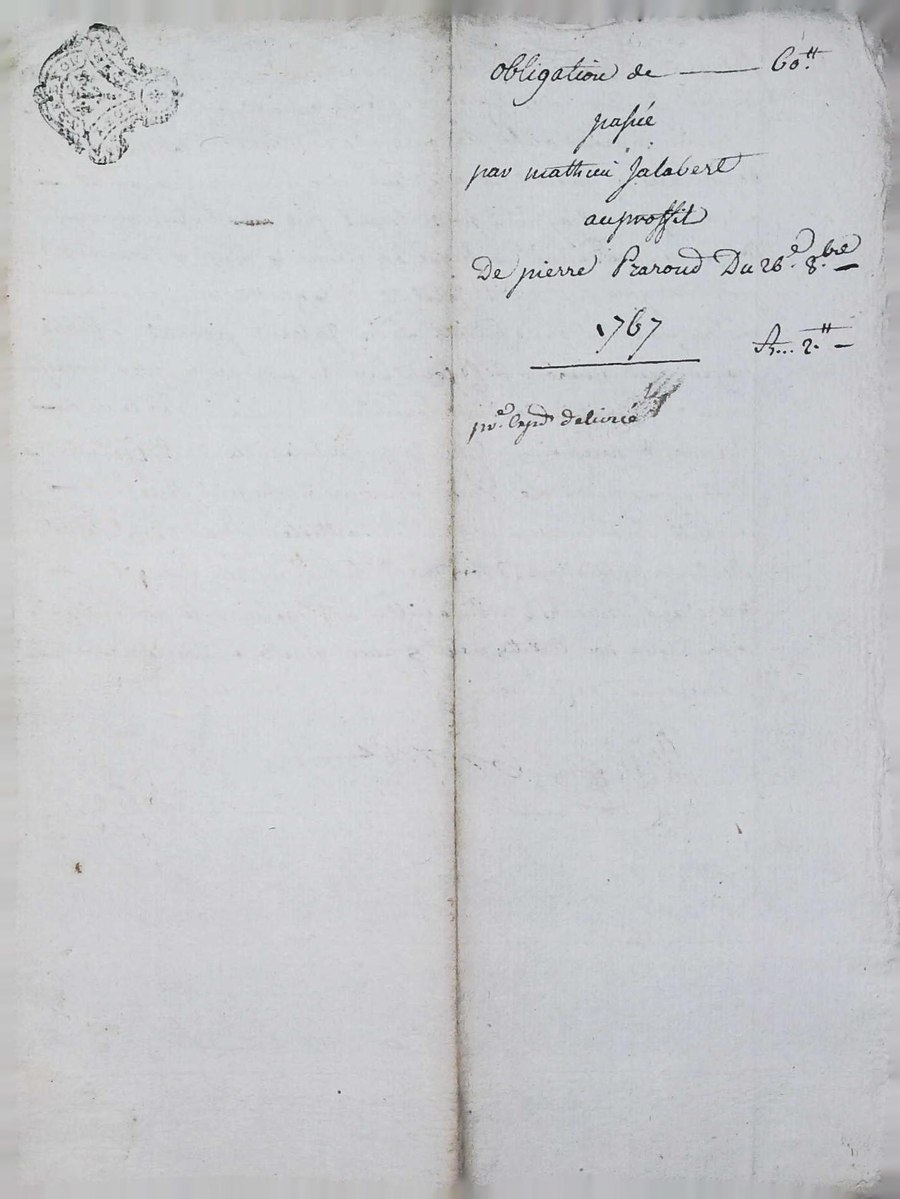 obligation de —— 60.tt
passée
par mathieu Jalabert
au proffit
De pierre Praroud Du 26.e 8.bre —
1767
R... 2.tt —
pre. Expd. délivrée